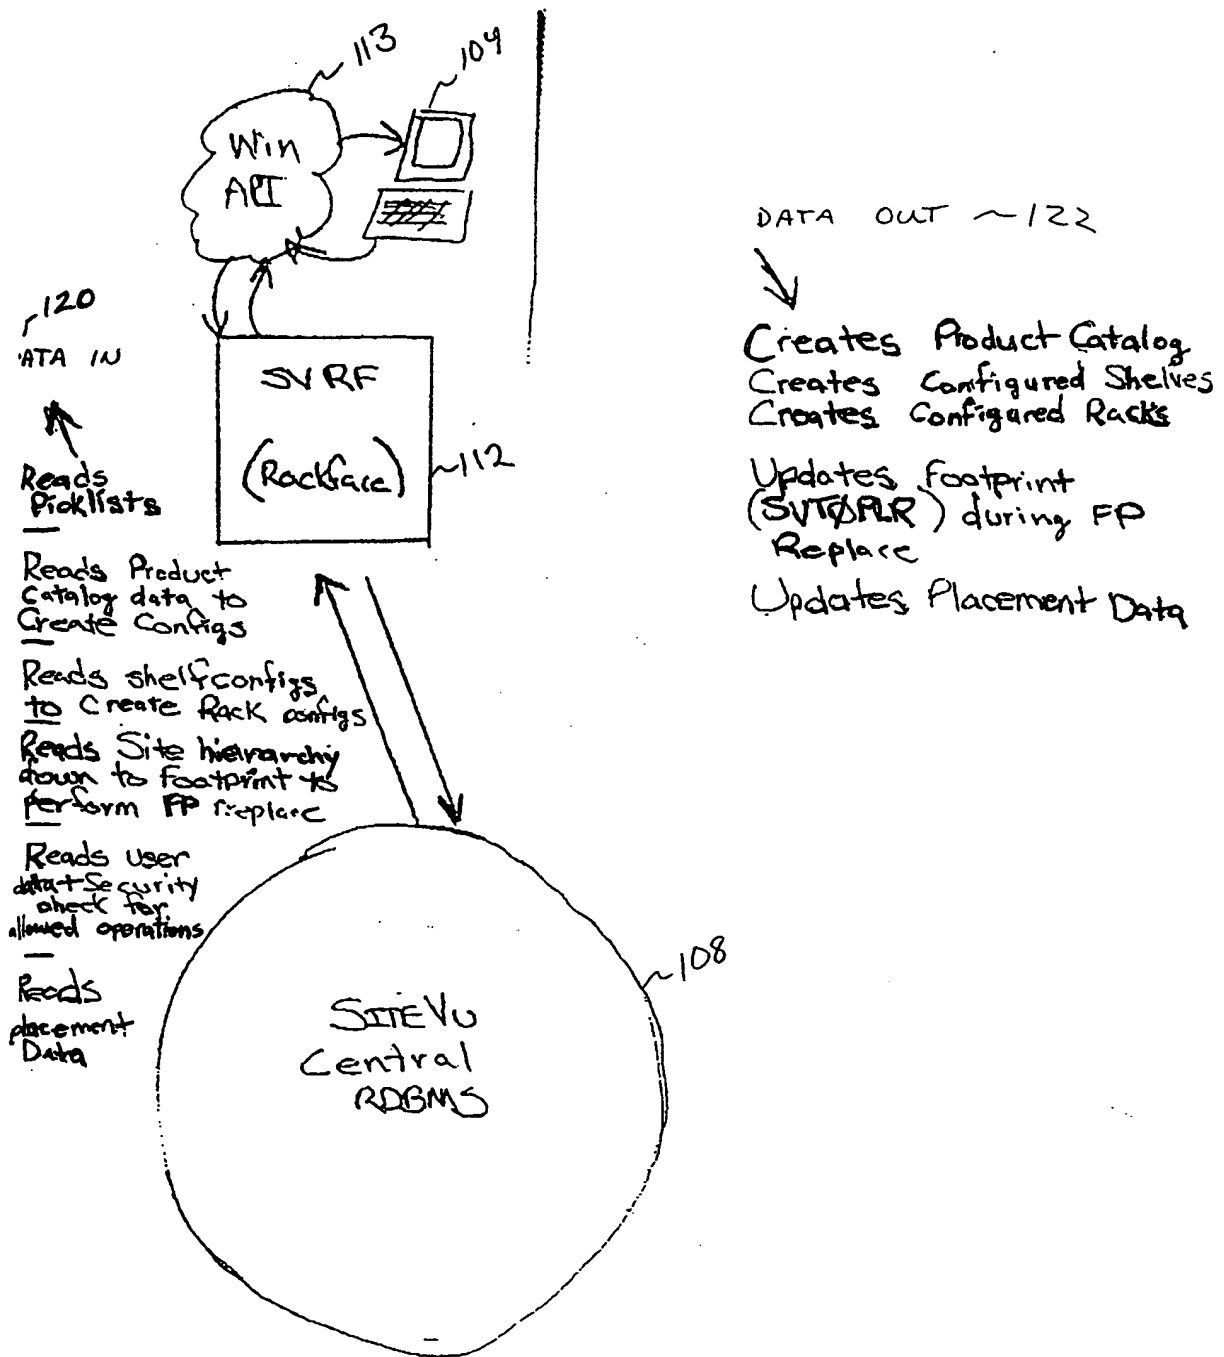 113
104
Win
API
120
ATA IN
SVRF
(Rackface)
112
Reads
Picklists
Reads Product
Catalog data to
Create Configs
Reads shelfconfigs
to Create Rack configs
Reads Site hierarchy
down to Footprint to
perform FP replace
Reads user
data + Security
check for
allowed operations
Reads
placement
Data
108
SITEVU
Central
RDBMS
DATA OUT ~122
Creates Product Catalog
Creates Configured Shelves
Creates Configured Racks
Updates Footprint
(SVTØFLR) during FP
Replace
Updates Placement Data